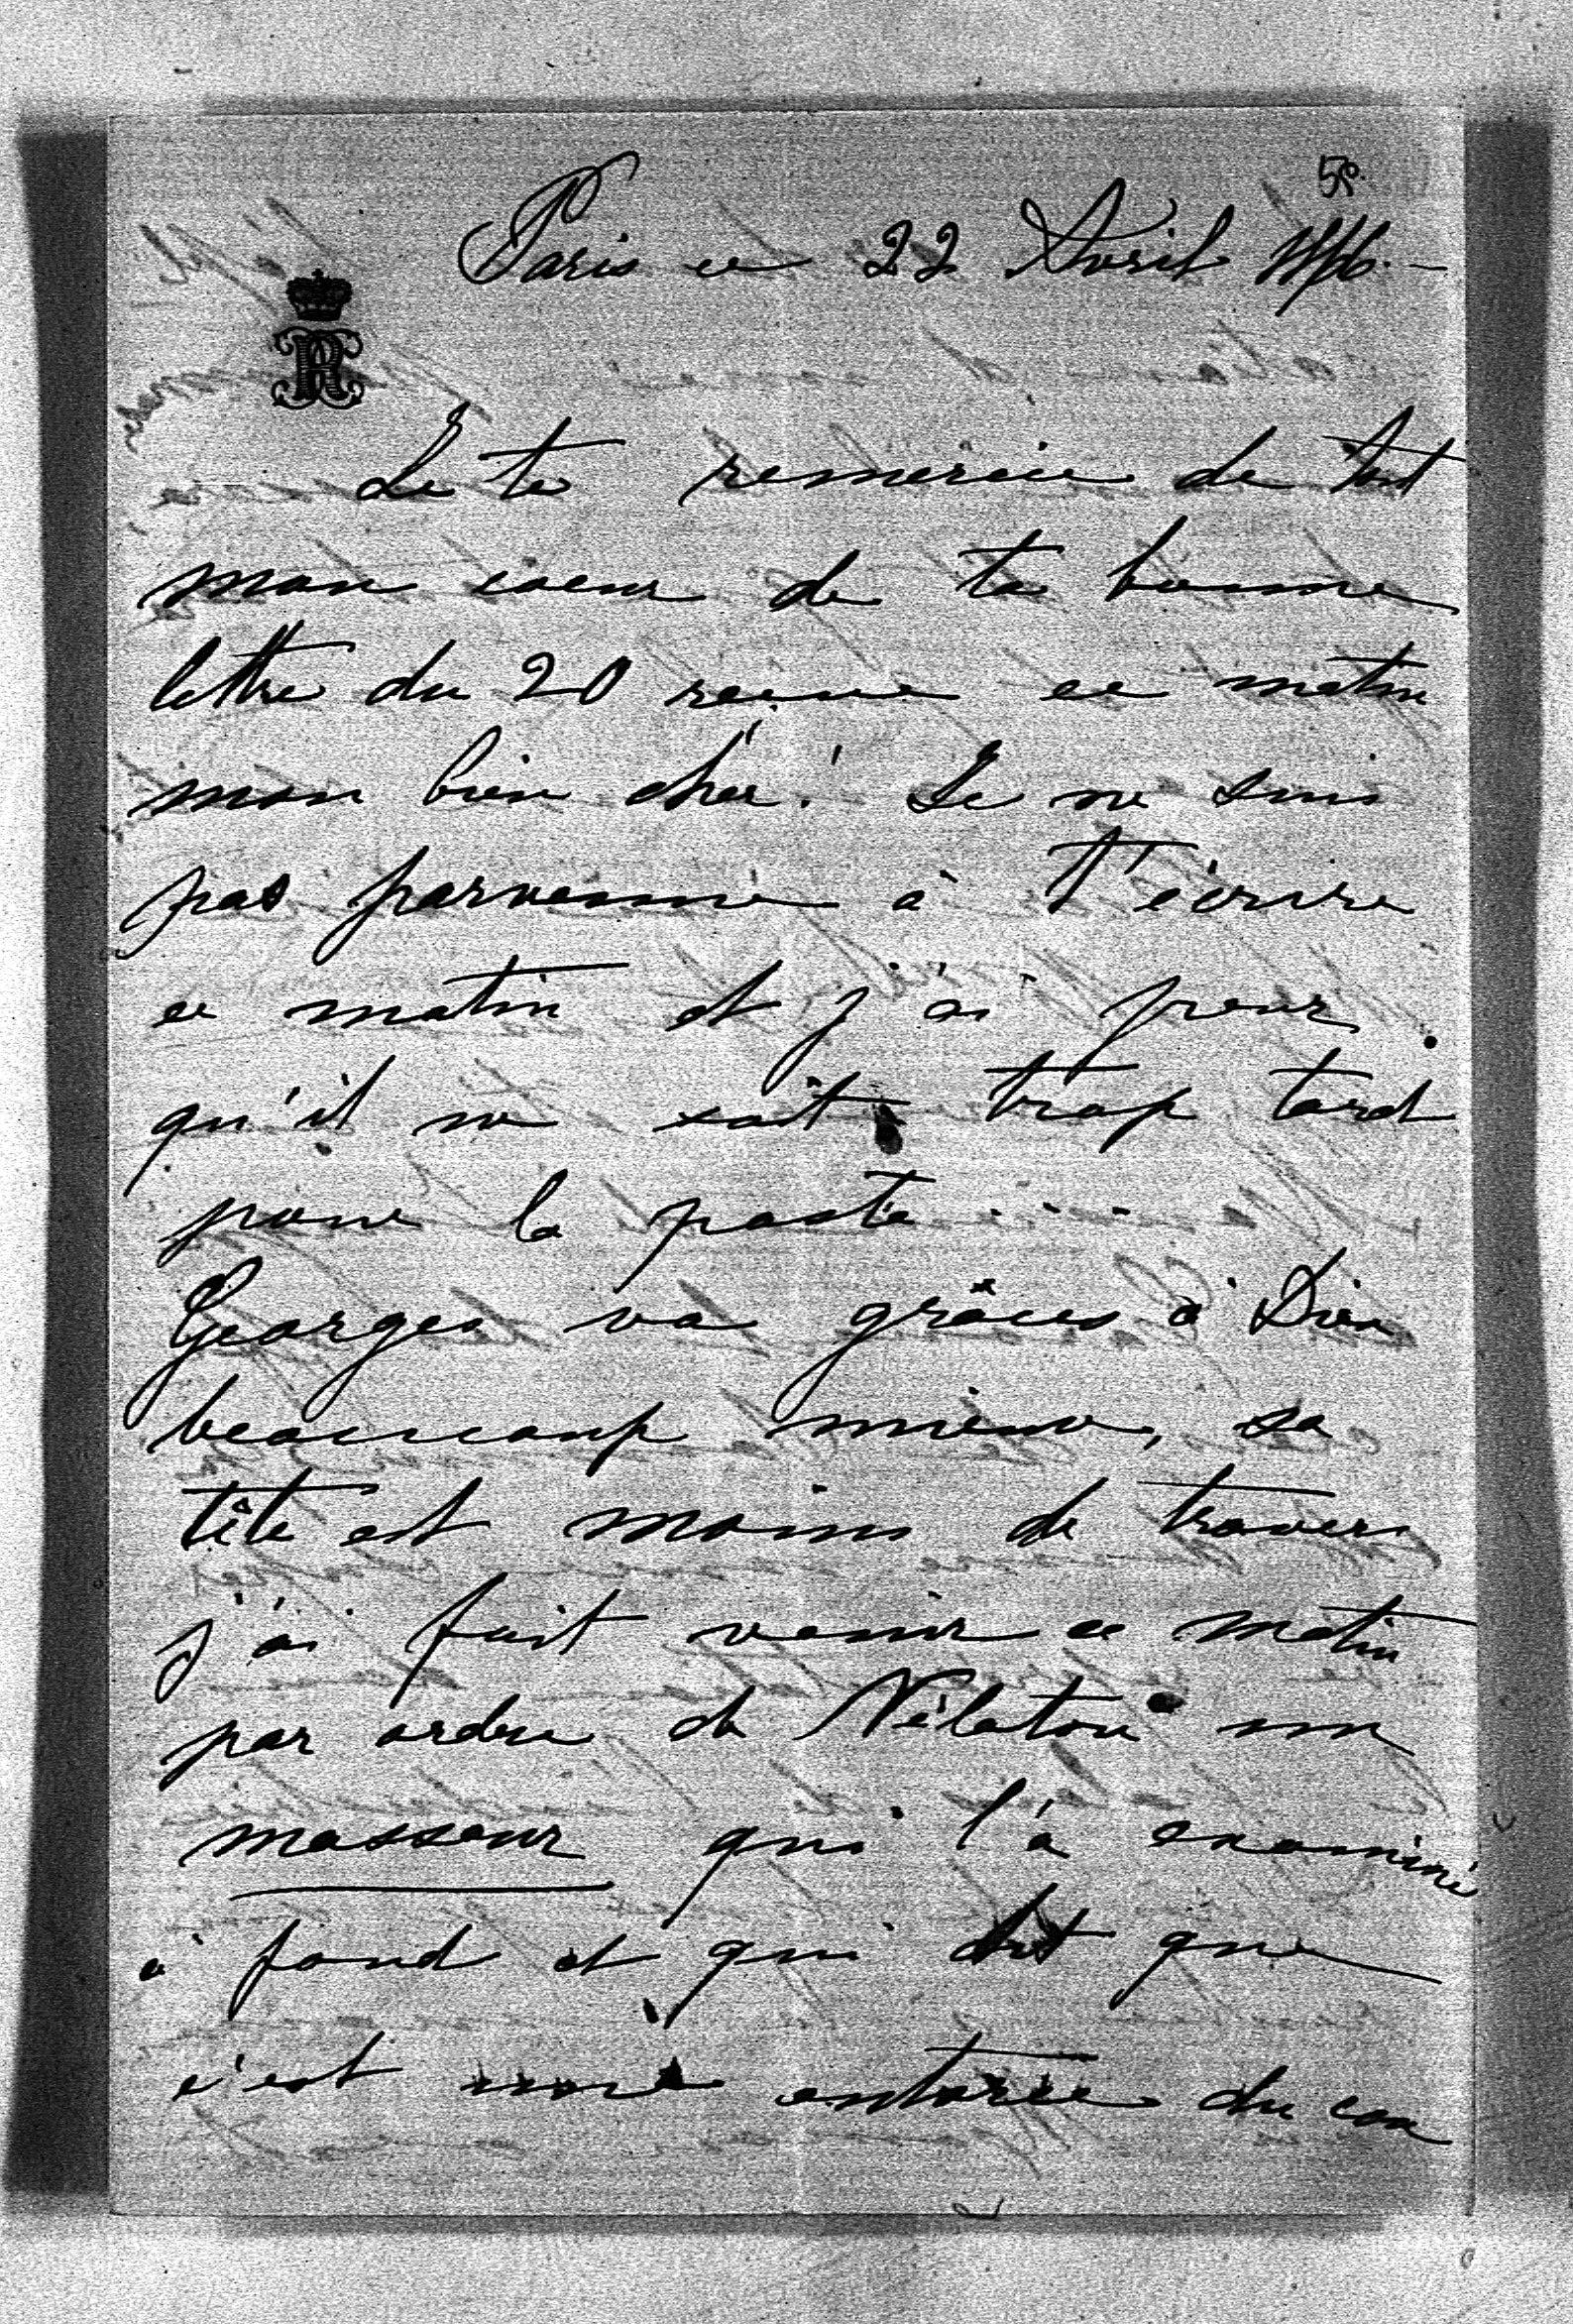 58.
Paris ce 22 Avril
Je te remercie de tout
mon coeur de ta bonne
lettre du 20 reçue ce matin
mon bien cher! Je ne suis
pas parvenue à t'écrire
ce matin et j'ai peur
qu'il ne soit trop tard
pour la poste....
Georges va grâces à Dieu
beaucoup mieux, sa
tête est moins de travers
j'ai fait venir ce matin
par ordre de Nélaton un
masseur qui l'a examiné
à fond et qui dit que
c'est une entorse du cou